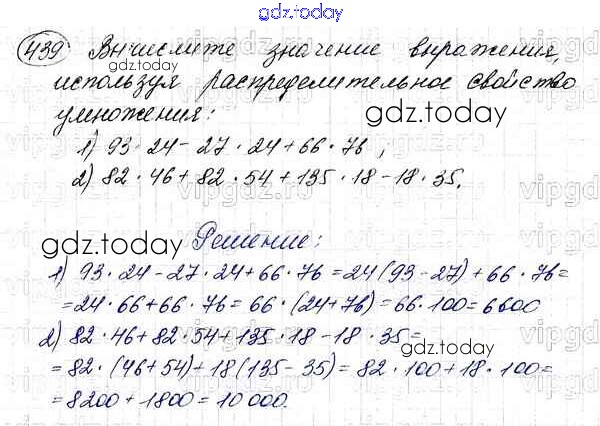 gdz.today
439. Вычислите значение выражения,
используя распределительное свойство
умножения:
gdz.today
1) 93 · 24 - 27 · 24 + 66 · 76 ;
2) 82 · 46 + 82 · 54 + 135 · 18 - 18 · 35.
gdz.today
Решение:
1) 93 · 24 - 27 · 24 + 66 · 76 = 24 (93 - 27) + 66 · 76 =
= 24 · 66 + 66 · 76 = 66 · (24 + 76) = 66 · 100 = 6600
2) 82 · 46 + 82 · 54 + 135 · 18 - 18 · 35 =
gdz.today
= 82 · (46 + 54) + 18 (135 - 35) = 82 · 100 + 18 · 100 =
= 8200 + 1800 = 10 000.
gdz.today